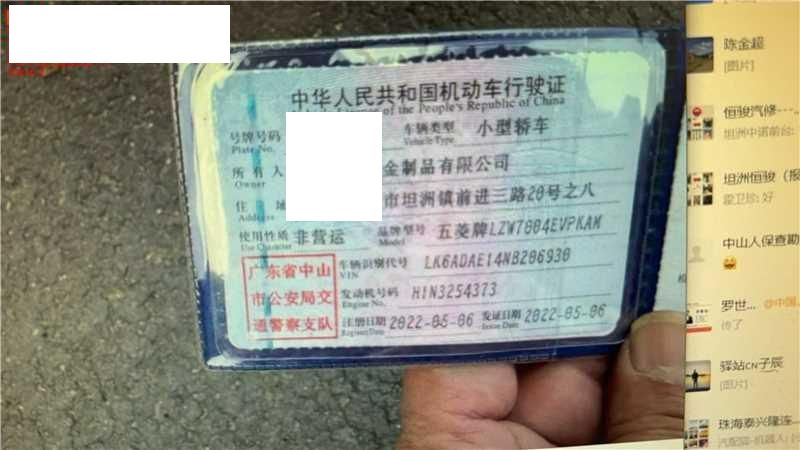 中华人民共和国机动车行驶证
of the People's Republic of China
号牌号码
Plate No.
车辆类型 小型轿车
Vehicle Type
所有人 金制品有限公司
Owner
住 址 市坦洲镇前进三路20号之八
Address
使用性质 非营运
Use Character
品牌型号 五菱牌LZW7004EVPKAM
Model
广东省中山
市公安局交
通警察支队
车辆识别代号 LK6ADAE14NB206930
VIN
发动机号码 H1N3254373
Engine No.
注册日期 2022-05-06
Register Date
发证日期 2022-05-06
Issue Date
陈金超
[图片]
恒骏汽修
坦洲中诺前台:
坦洲恒骏(报
霍卫珍: 好
中山人保查勘
罗世... @中国
传了
驿站CN子辰
[图片]
珠海泰兴隆连...